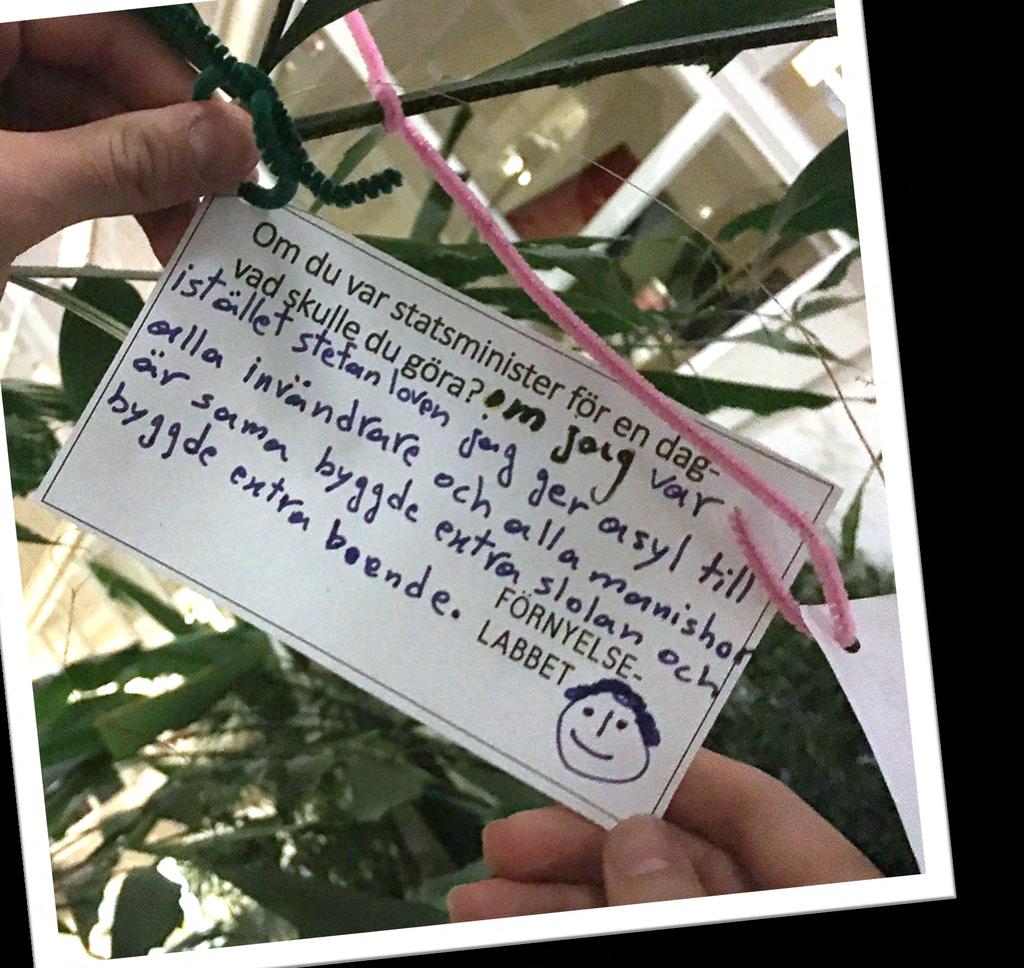 Om du var statsminister för en dag-
vad skulle du göra? om jag var
istället stefan loven jag ger asyl till
alla invändrare och alla manishor
är sama byggde extra slolan och
byggde extra boende.
FÖRNYELSE-
LABBET